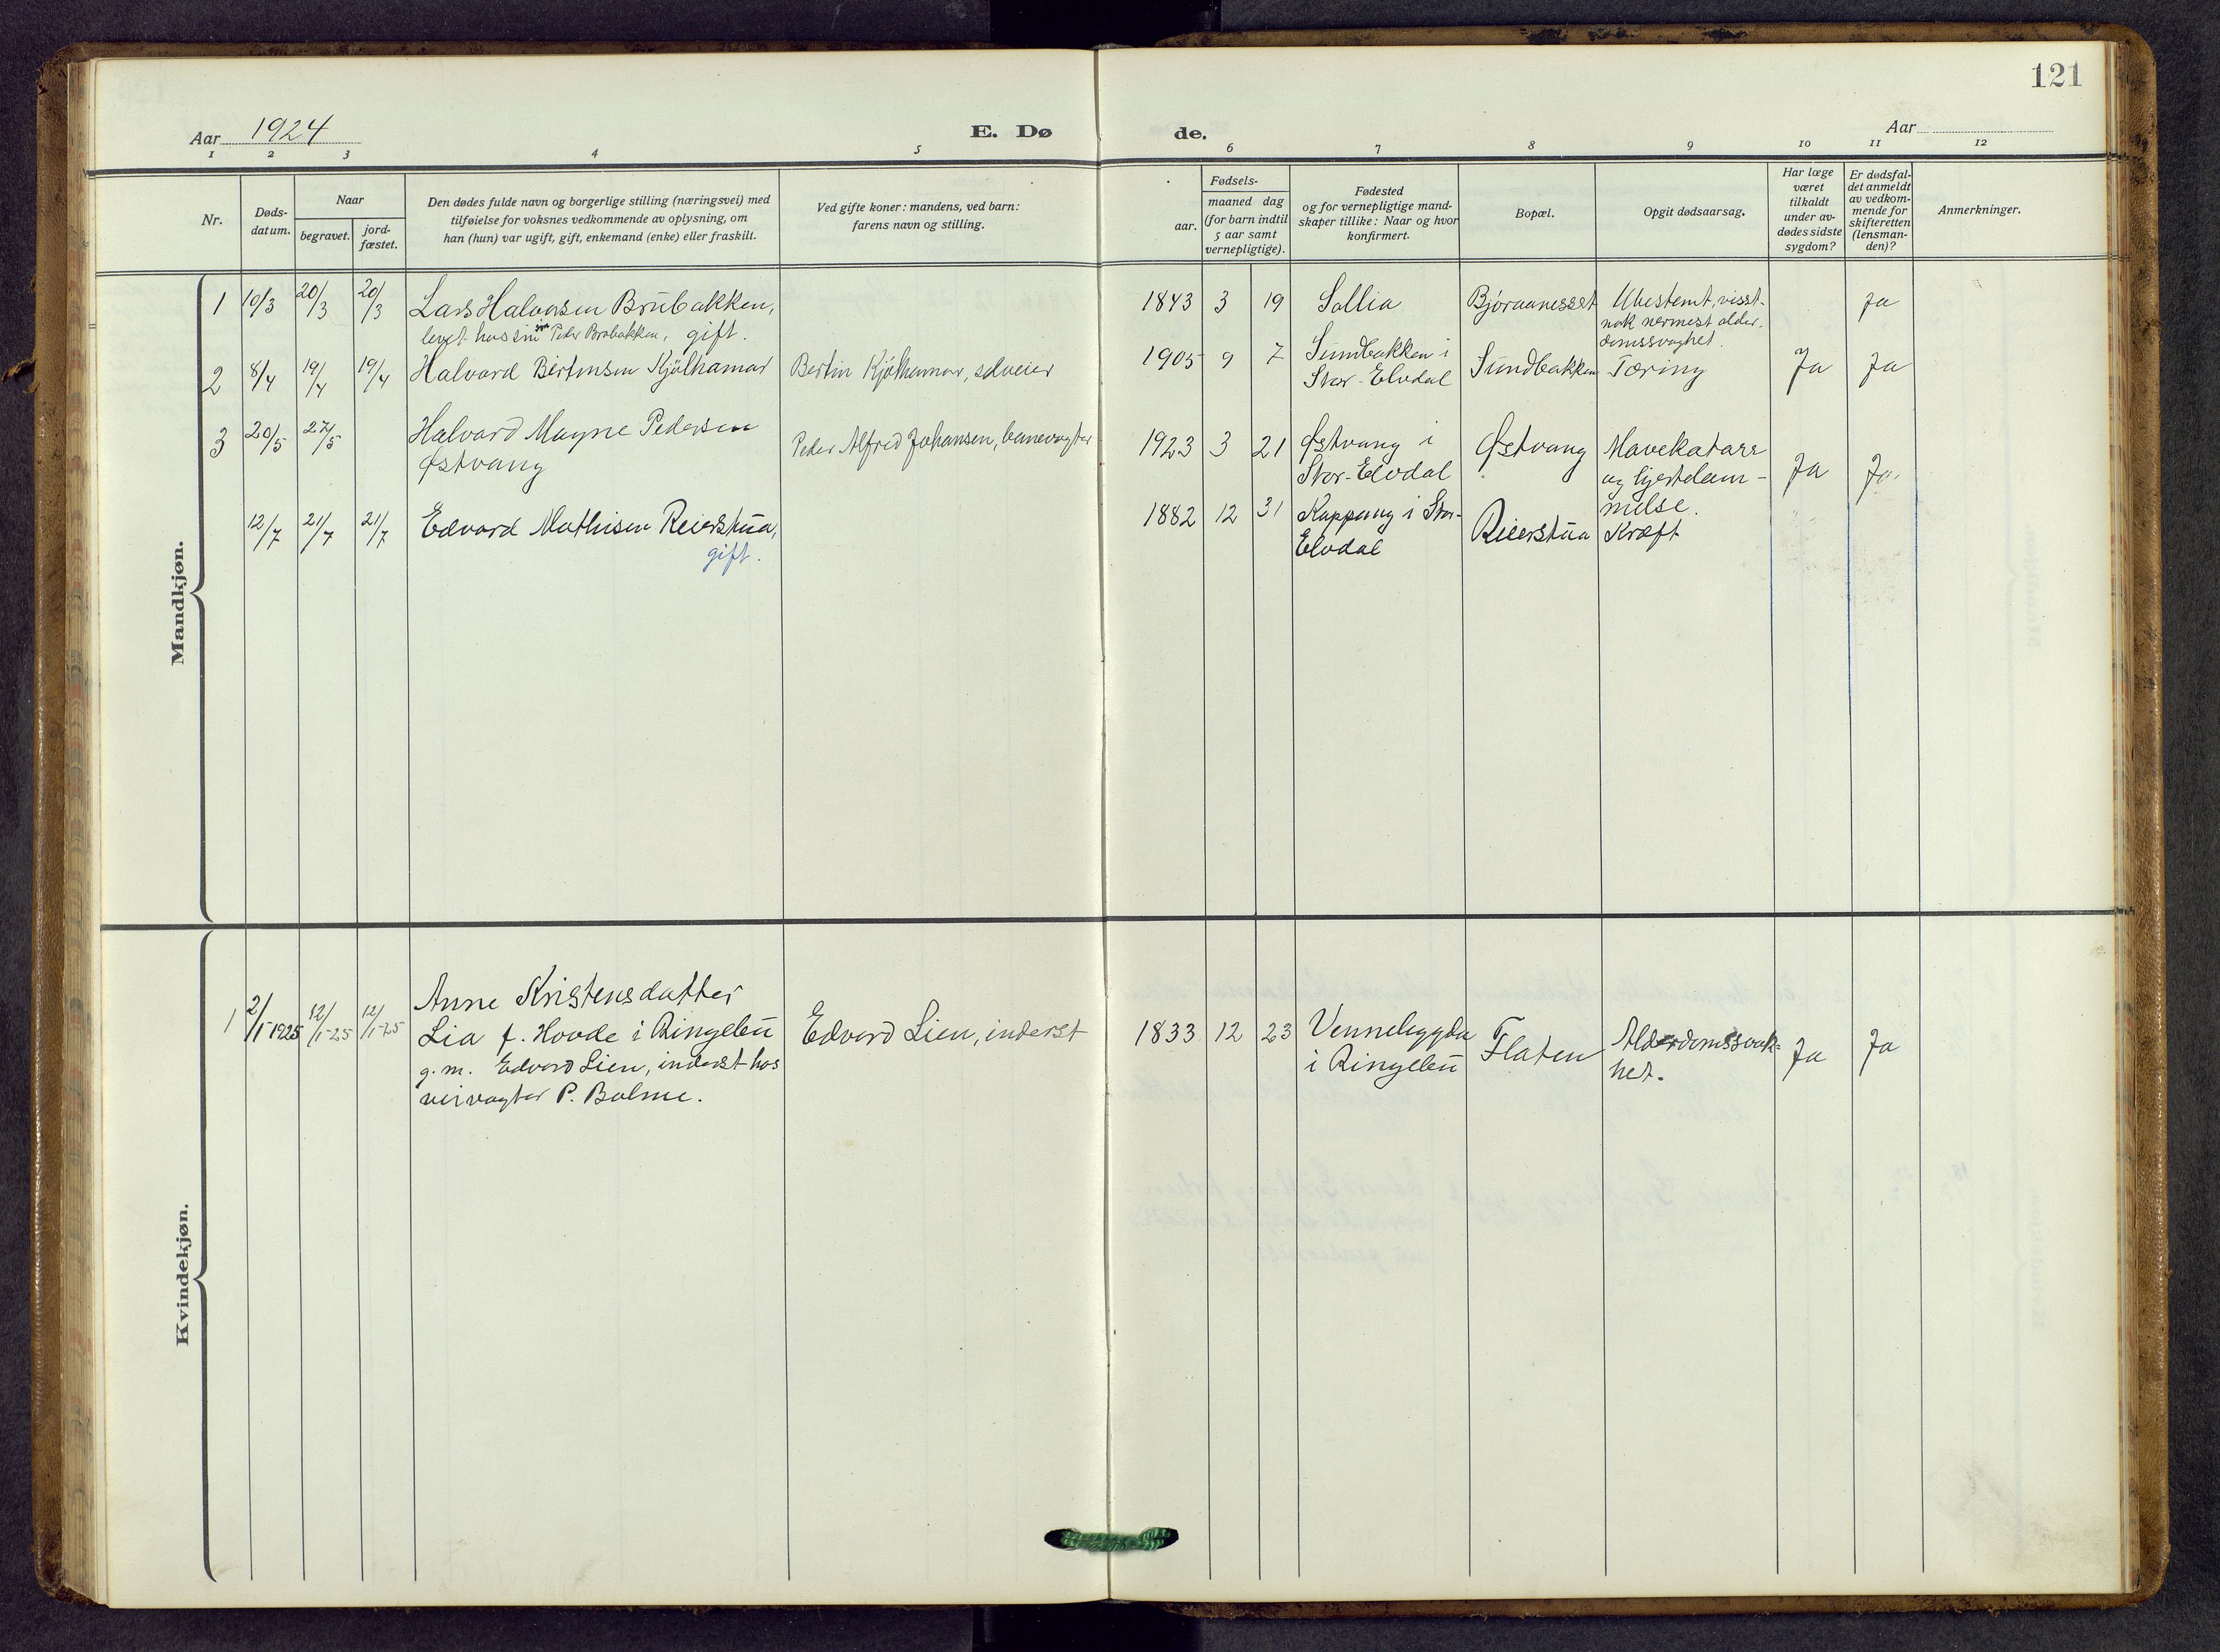 121
Aar 1924
E. Dø
de.
Aar
1 2 3 4 5 6 7 8 9 10 11 12
Nr.
Døds-
datum.
Naar
begravet.
jord-
fæstet.
Den dødes fulde navn og borgerlige stilling (næringsvei) med
tilføielse for voksnes vedkommende av oplysning, om
han (hun) var ugift, gift, enkemand (enke) eller fraskilt.
Ved gifte koner: mandens, ved barn:
farens navn og stilling.
Fødsels-
aar.
maaned dag
(for barn indtil
5 aar samt
vernepligtige).
Fødested
og for vernepligtige mand-
skaper tillike: Naar og hvor
konfirmert.
Bopæl.
Opgit dødsaarsag.
Har læge
været
tilkaldt
under av-
dødes sidste
sygdom?
Er dødsfal-
det anmeldt
av vedkom-
mende for
skifteretten
(lensman-
den)?
Anmerkninger.
Mandkjøn.
1 10/3 20/3 20/3 Lars Halvorsen Brubakken,
levet hos sin søn Peder Brubakken, gift.
1843 3 19 Sollia Bjøraanesset Ubestemt, visst-
nok nermest alder-
domssvaghet.
Ja
2 8/4 19/4 19/4 Halvard Bertinsen Kjølhamar Bertin Kjølhamar, selveier
1905 9 7 Sundbakken i
Stor-Elvdal
Sundbakken Tæring Ja Ja
3 20/5 27/5 Halvard Magne Pedersen
Østvang
Peder Alfred Johansen, banevogter
1923 3 21 Østvang i
Stor-Elvdal
Østvang Mavekatarr
og hjertelam-
melse.
Ja Ja.
12/7 21/7 21/7 Edvard Mathisen Reierstua,
gift.
1882 12 31 Koppang i Stor-
Elvdal
Reierstua Kræft
Kvindekjøn.
1 2/1-1925 12/1-25 12/1-25 Anne Kristensdatter
Lia f. Hovde i Ringebu
g.m. Edvard Lien, inderst hos
veivogter P. Bolme.
Edvard Lien, inderst
1833 12 23 Vennebygda
i Ringebu
Flaten Alderdomssvak-
het.
Ja Ja